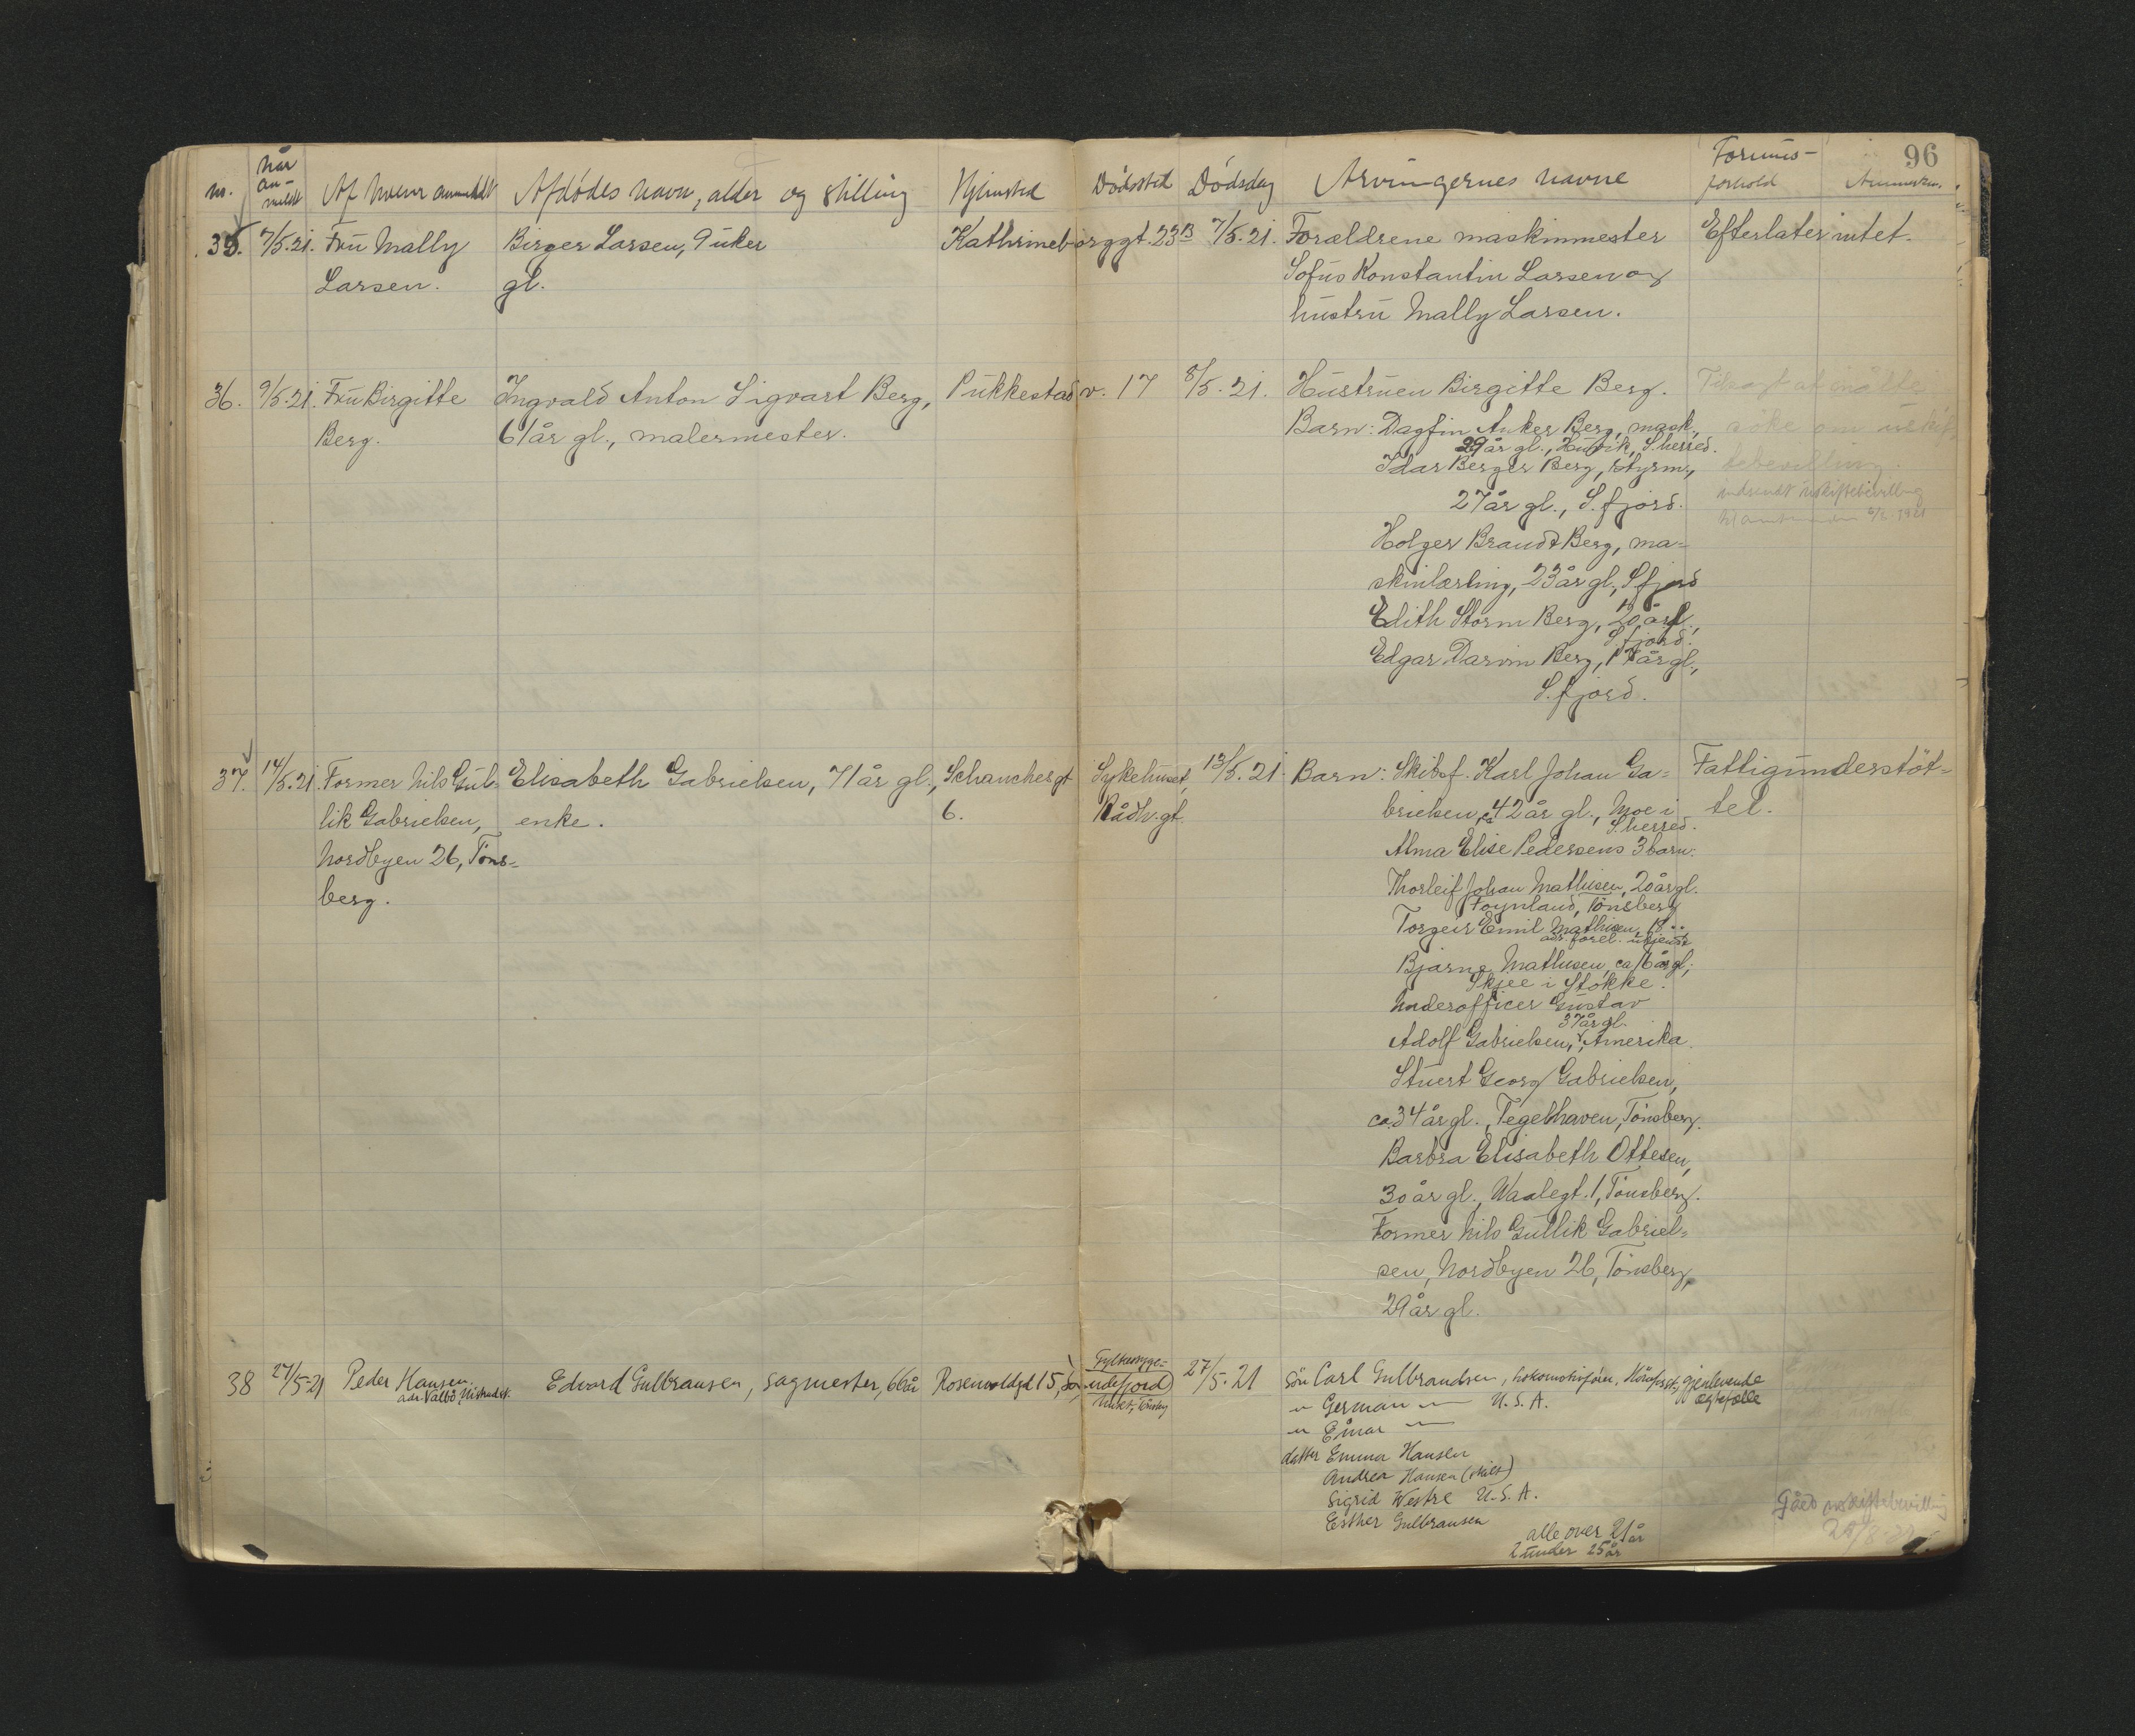 96
nr. | Når anmeldt | Af hvem anmeldt | Afdødes navn, alder og stilling | Hjemsted | Dødssted | Dødsdag | Arvingernes navne | Formues-forhold | Anmerkn.
35. 7/5.21. Fru Mally | Birger Larsen, 9 uker | Kathrineborggt. 23B | 7/5.21. | Forældrene maskinmester | Efterlater intet.
Larsen. | gl. | Sofus Konstantin Larsen og
hustru Mally Larsen.
36. 9/5.21. Fru Birgitte | Ingvald Anton Sigvart Berg, | Pukkestadv. 17 | 8/5.21. | Hustruen Birgitte Berg. | Tilsagt at måtte
Berg. | 61 år gl., malermester. | Barn: Dagfin Anker Berg, mask., | søke om uskif-
29 år gl., Huvik, S.herred.
Idar Berger Berg, styrm., | tebevilling
27 år gl., S.fjord. | indsendt uskiftebevilling
Holger Brandt Berg, ma-
skinlærling, 23 år gl., S.fjord
Edith Storm Berg, 20 år gl.,
S.fjord.
Edgar Darvin Berg, 17 år gl.,
S.fjord.
37. 14/5.21. Former Nils Gul- | Elisabeth Gabrielsen, 71 år gl., | Schanchesgt | Sykehuset, | 13/5.21. | Barn: Skibsf. Karl Johan Ga- | Fattigunderstöt-
lik Gabrielsen, | enke. | 6. | Rådh.gt. | brielsen, ca 42 år gl., Moe i | tet.
S.herred.
Nordbyen 26, Töns- | Alma Elise Pedersens 3 barn:
berg. | Thorleif Johan Mathisen, 20 år gl.
Föynland, Tönsberg
Torgeir Emil Mathisen, 18 "
adr. forel. ukjendt
Bjarne Mathisen, ca 16 år gl;
Skjee i Stokke.
Underofficer Gustav
37 år gl.
Adolf Gabrielsen, Amerika.
Stuert Georg Gabrielsen,
ca. 34 år gl., Teglhaven, Tönsberg.
Barbra Elisabeth Ottesen,
30 år gl., Waalegt. 1, Tönsberg.
Former Nils Gullik Gabriel-
sen, Nordbyen 26, Tönsberg,
29 år gl.
38 27/5-21 Peder Hansen. | Edvard Gulbransen, sagmester, 66 år | Rosenvoldgd 15, Sandefjord | Fylkessyge-huset, Tönsbg | 27/5-21 | Sön Carl Gulbrandsen, lokomotivförer, | gjenlevende
" German — U.S.A. | ægtefælle
" Einar —
datter Emma Hansen
Andrea Hansen (skilt)
Sigrid Westre U.S.A.
Esther Gulbransen | uskiftebevilling
alle over 21 år
2 under 25 år